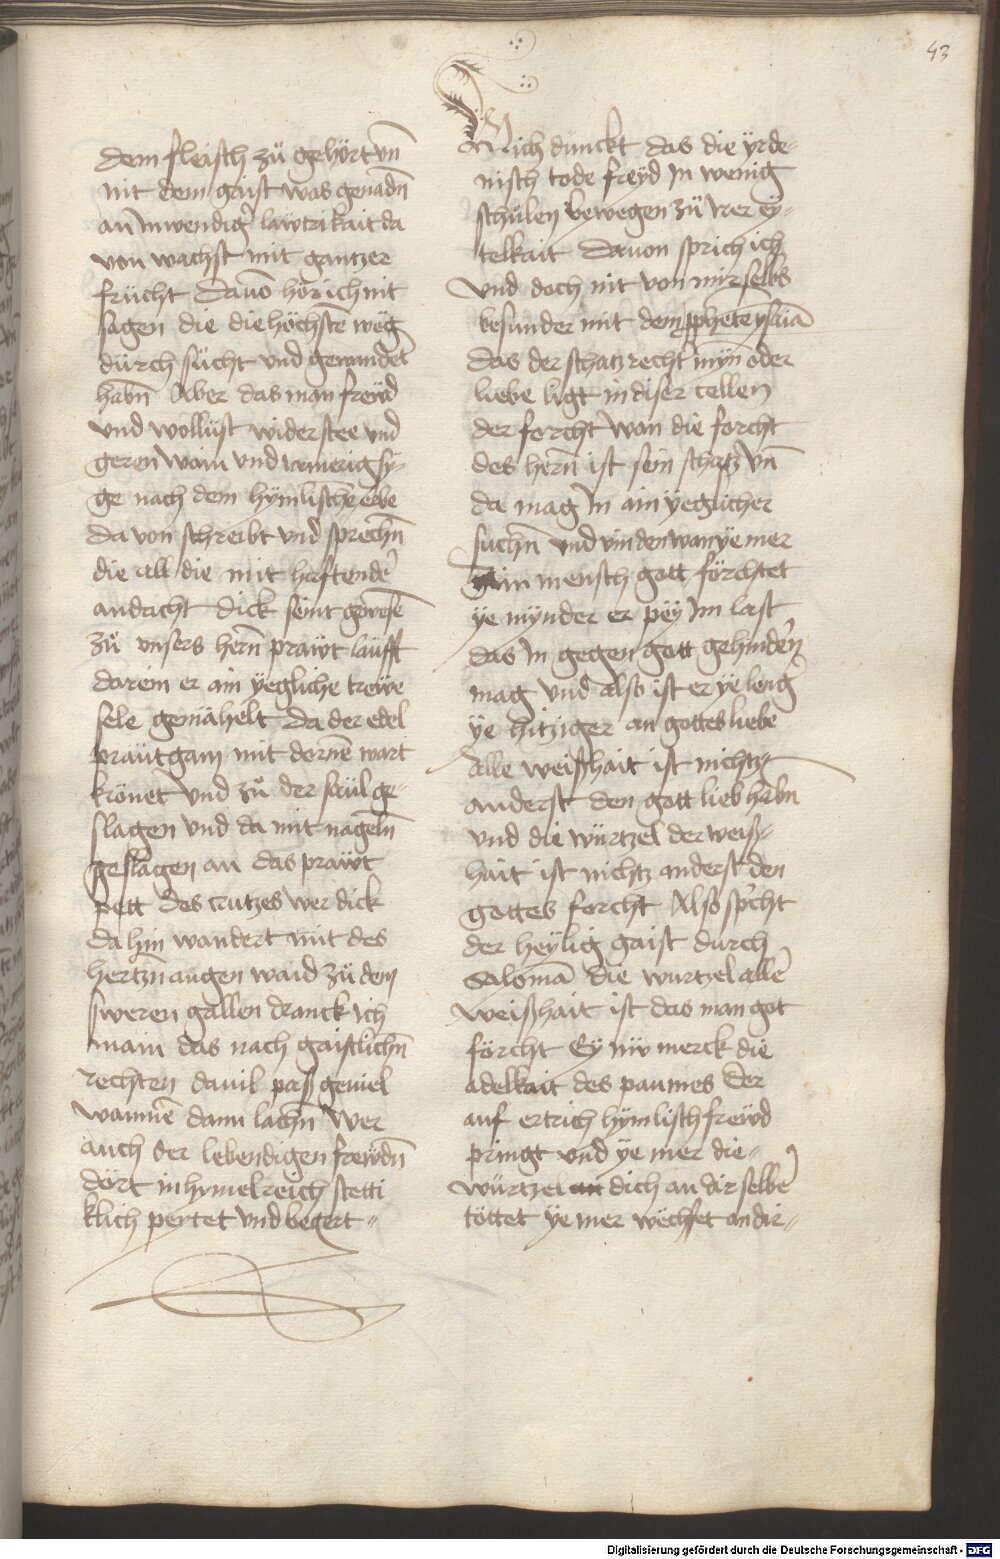 43
dem fleisch zů gehört vn̄
nit dem gaist was genadn̄
an Inwendiger lawtrikait da
von wachst mit gantzer
frücht Dauō hör ich nit
sagen die die höchstē weg
dürch sücht vnd gewandelt
habn̄ Aber das man frewd
vnd wollust widerstee vnd
geren wain vnd iamerig sy-
ge nach dem hymlischē erbe
da von schreibt vnd sprechn̄
die all die mit haftender
andacht dick seint gewesē
zů vnsers hern̄ prawt laufft
darein er ain yegliche trewe
sele gemähelt Da der edel
praütgam mit dornē wart
krönet vnd zů der saül ge-
slagen vnd da mit nageln̄
geslagen an das prawt
pett des crutzes wer dick
da hin wandert mit des
hertzn̄ augen waid zů dem
sweren gallen dranck Ich
main das nach gaistlichn̄
rechten dauil pas geuiel
wainnē dann lachn̄ Wer
auch der lebendigen frewdn̄
dört in hymelreich stetti
klich peytet vnd begert
Mich dunckt das die yrde-
nisch tode freyd In wenig
schulen bewegen zů irer ey-
telkait Dauon sprich ich
vnd doch nit von mir selbs
besunder mit dem pphete ysaia
das der schatz recht myn oder
liebe ligt in diser cellen
der forcht wan die forcht
des hern̄ ist sein schatz vn̄
da mag In ain yeglicher
suchn̄ vnd vinden wan ye mer
ain mensch gott förchtet
ye mynder er pey Im last
das In gegen gott gehindern
mag vnd also ist er ye leng
ye hitziger an gottes liebe
Alle weißhait ist nichtz
anderst den gott lieb habn̄
vnd die würtzel der weiß-
hait ist nichtz anderst den
gottes forcht Also sp̄cht
der heylig gaist durch
Salomā die wurtzel aller
weißhait ist das man got
förcht Ey nw merck die
adelkait des paumes Der
auf ertrich hymlisch frewd
pringt vnd ye mer die
würtzel dich an dir selber
töttet ye mer wechset an dir
Digitalisierung gefördert durch die Deutsche Forschungsgemeinschaft - DFG